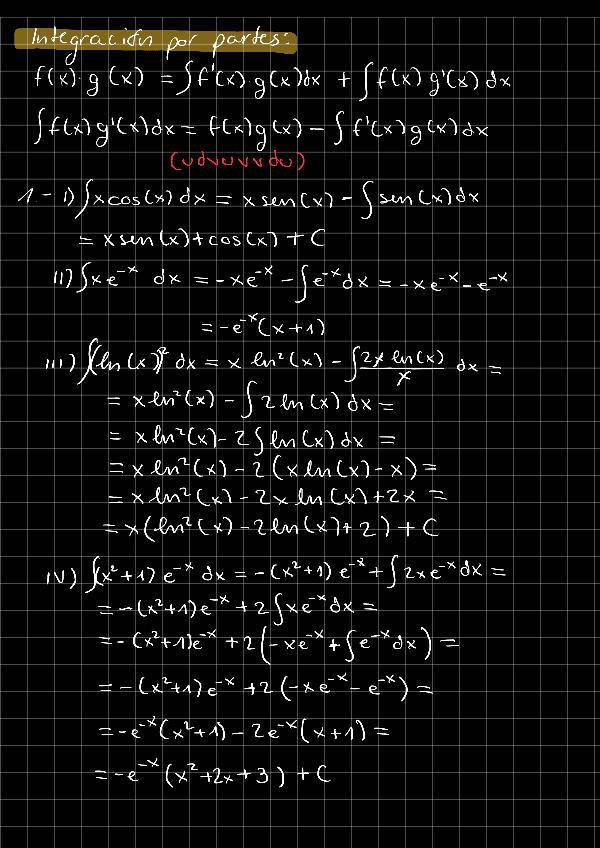 Integración por partes:
f(x)·g(x) = ∫f'(x)·g(x)dx + ∫f(x) g'(x) dx
∫f(x)g'(x)dx = f(x)g(x) - ∫f'(x)g(x)dx
(udvuvvdu)
1.- i) ∫xcos(x)dx = x sen(x) - ∫sen(x)dx
= x sen(x)+cos(x) + C
ii) ∫xe^{-x} dx = -xe^{-x} - ∫e^{-x}dx = -xe^{-x} - e^{-x}
= -e^{-x}(x+1)
iii) ∫(ln(x))² dx = x ln²(x) - ∫2x ln(x)/x dx =
= x ln²(x) - ∫2 ln(x)dx =
= x ln²(x) - 2∫ln(x)dx =
= x ln²(x) - 2(x ln(x) - x) =
= x ln²(x) - 2x ln(x) + 2x =
= x(ln²(x) - 2ln(x) + 2) + C
iv) ∫(x²+1) e^{-x} dx = -(x²+1) e^{-x} + ∫2xe^{-x}dx =
= -(x²+1)e^{-x} + 2∫xe^{-x}dx =
= -(x²+1)e^{-x} + 2(-xe^{-x} + ∫e^{-x}dx) =
= -(x²+1)e^{-x} + 2(-xe^{-x} - e^{-x}) =
= -e^{-x}(x²+1) - 2e^{-x}(x+1) =
= -e^{-x}(x²+2x+3) + C